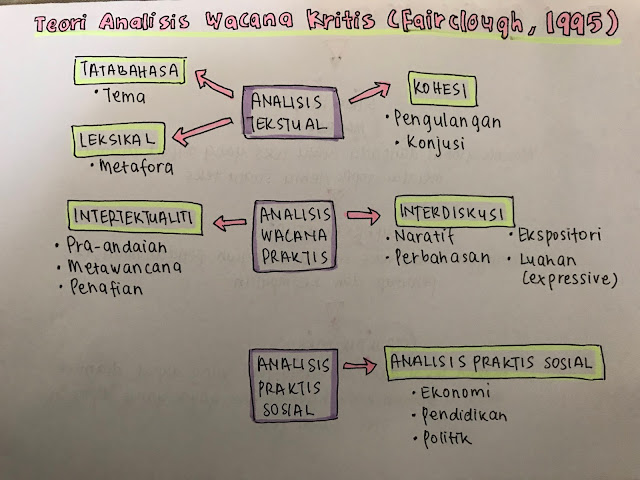 Teori Analisis Wacana Kritis (Fairclough, 1995)
TATABAHASA
• Tema
LEKSIKAL
• Metafora
ANALISIS
TEKSTUAL
KOHESI
• Pengulangan
• Konjusi
INTERTEKTUALITI
• Pra-andaian
• Metawancana
• Penafian
ANALISIS
WACANA
PRAKTIS
INTERDISKUSI
• Naratif
• Perbahasan
• Ekspositori
• Luahan
(expressive)
ANALISIS
PRAKTIS
SOSIAL
ANALISIS PRAKTIS SOSIAL
• Ekonomi
• Pendidikan
• Politik